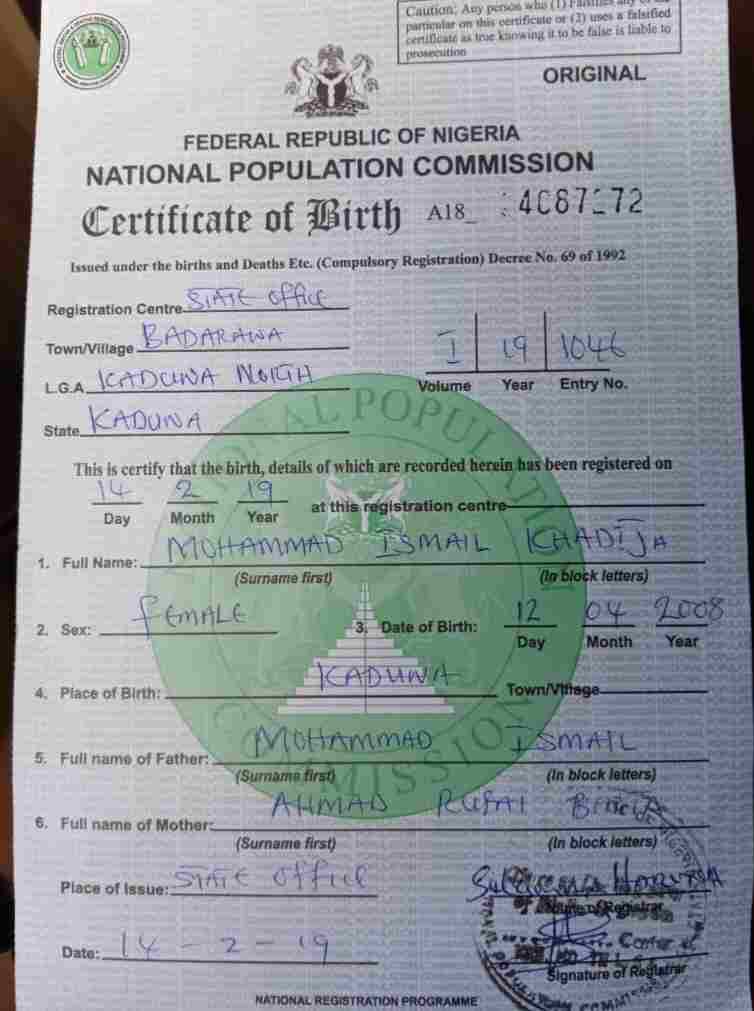 Caution: Any person who (1) Falsifies any of the
particular on this certificate or (2) uses a falsified
certificate as true knowing it to be false is liable to
prosecution
ORIGINAL
FEDERAL REPUBLIC OF NIGERIA
NATIONAL POPULATION COMMISSION
Certificate of Birth A18_
Issued under the births and Deaths Etc. (Compulsory Registration) Decree No. 69 of 1992
Registration Centre STATE OFFICE
Town/Village BADARAWA
I 19 1046
L.G.A. KADUNA NORTH
Volume Year Entry No.
State KADUNA
This is certify that the birth, details of which are recorded herein has been registered on
14 2 19 at this registration centre
Day Month Year
1. Full Name: MOHAMMAD ISMAIL KHADIJA
(Surname first) (In block letters)
2. Sex: FEMALE 3. Date of Birth: 12 04 2008
Day Month Year
4. Place of Birth: KADUNA Town/Village
5. Full name of Father: MOHAMMAD ISMAIL
(Surname first) (In block letters)
6. Full name of Mother: AHMAD RUFAI
(Surname first) (In block letters)
Place of Issue: STATE OFFICE
Name of Registrar
Date: 14 - 2 - 19
Signature of Registrar
NATIONAL REGISTRATION PROGRAMME
NATIONAL POPULATION COMMISSION